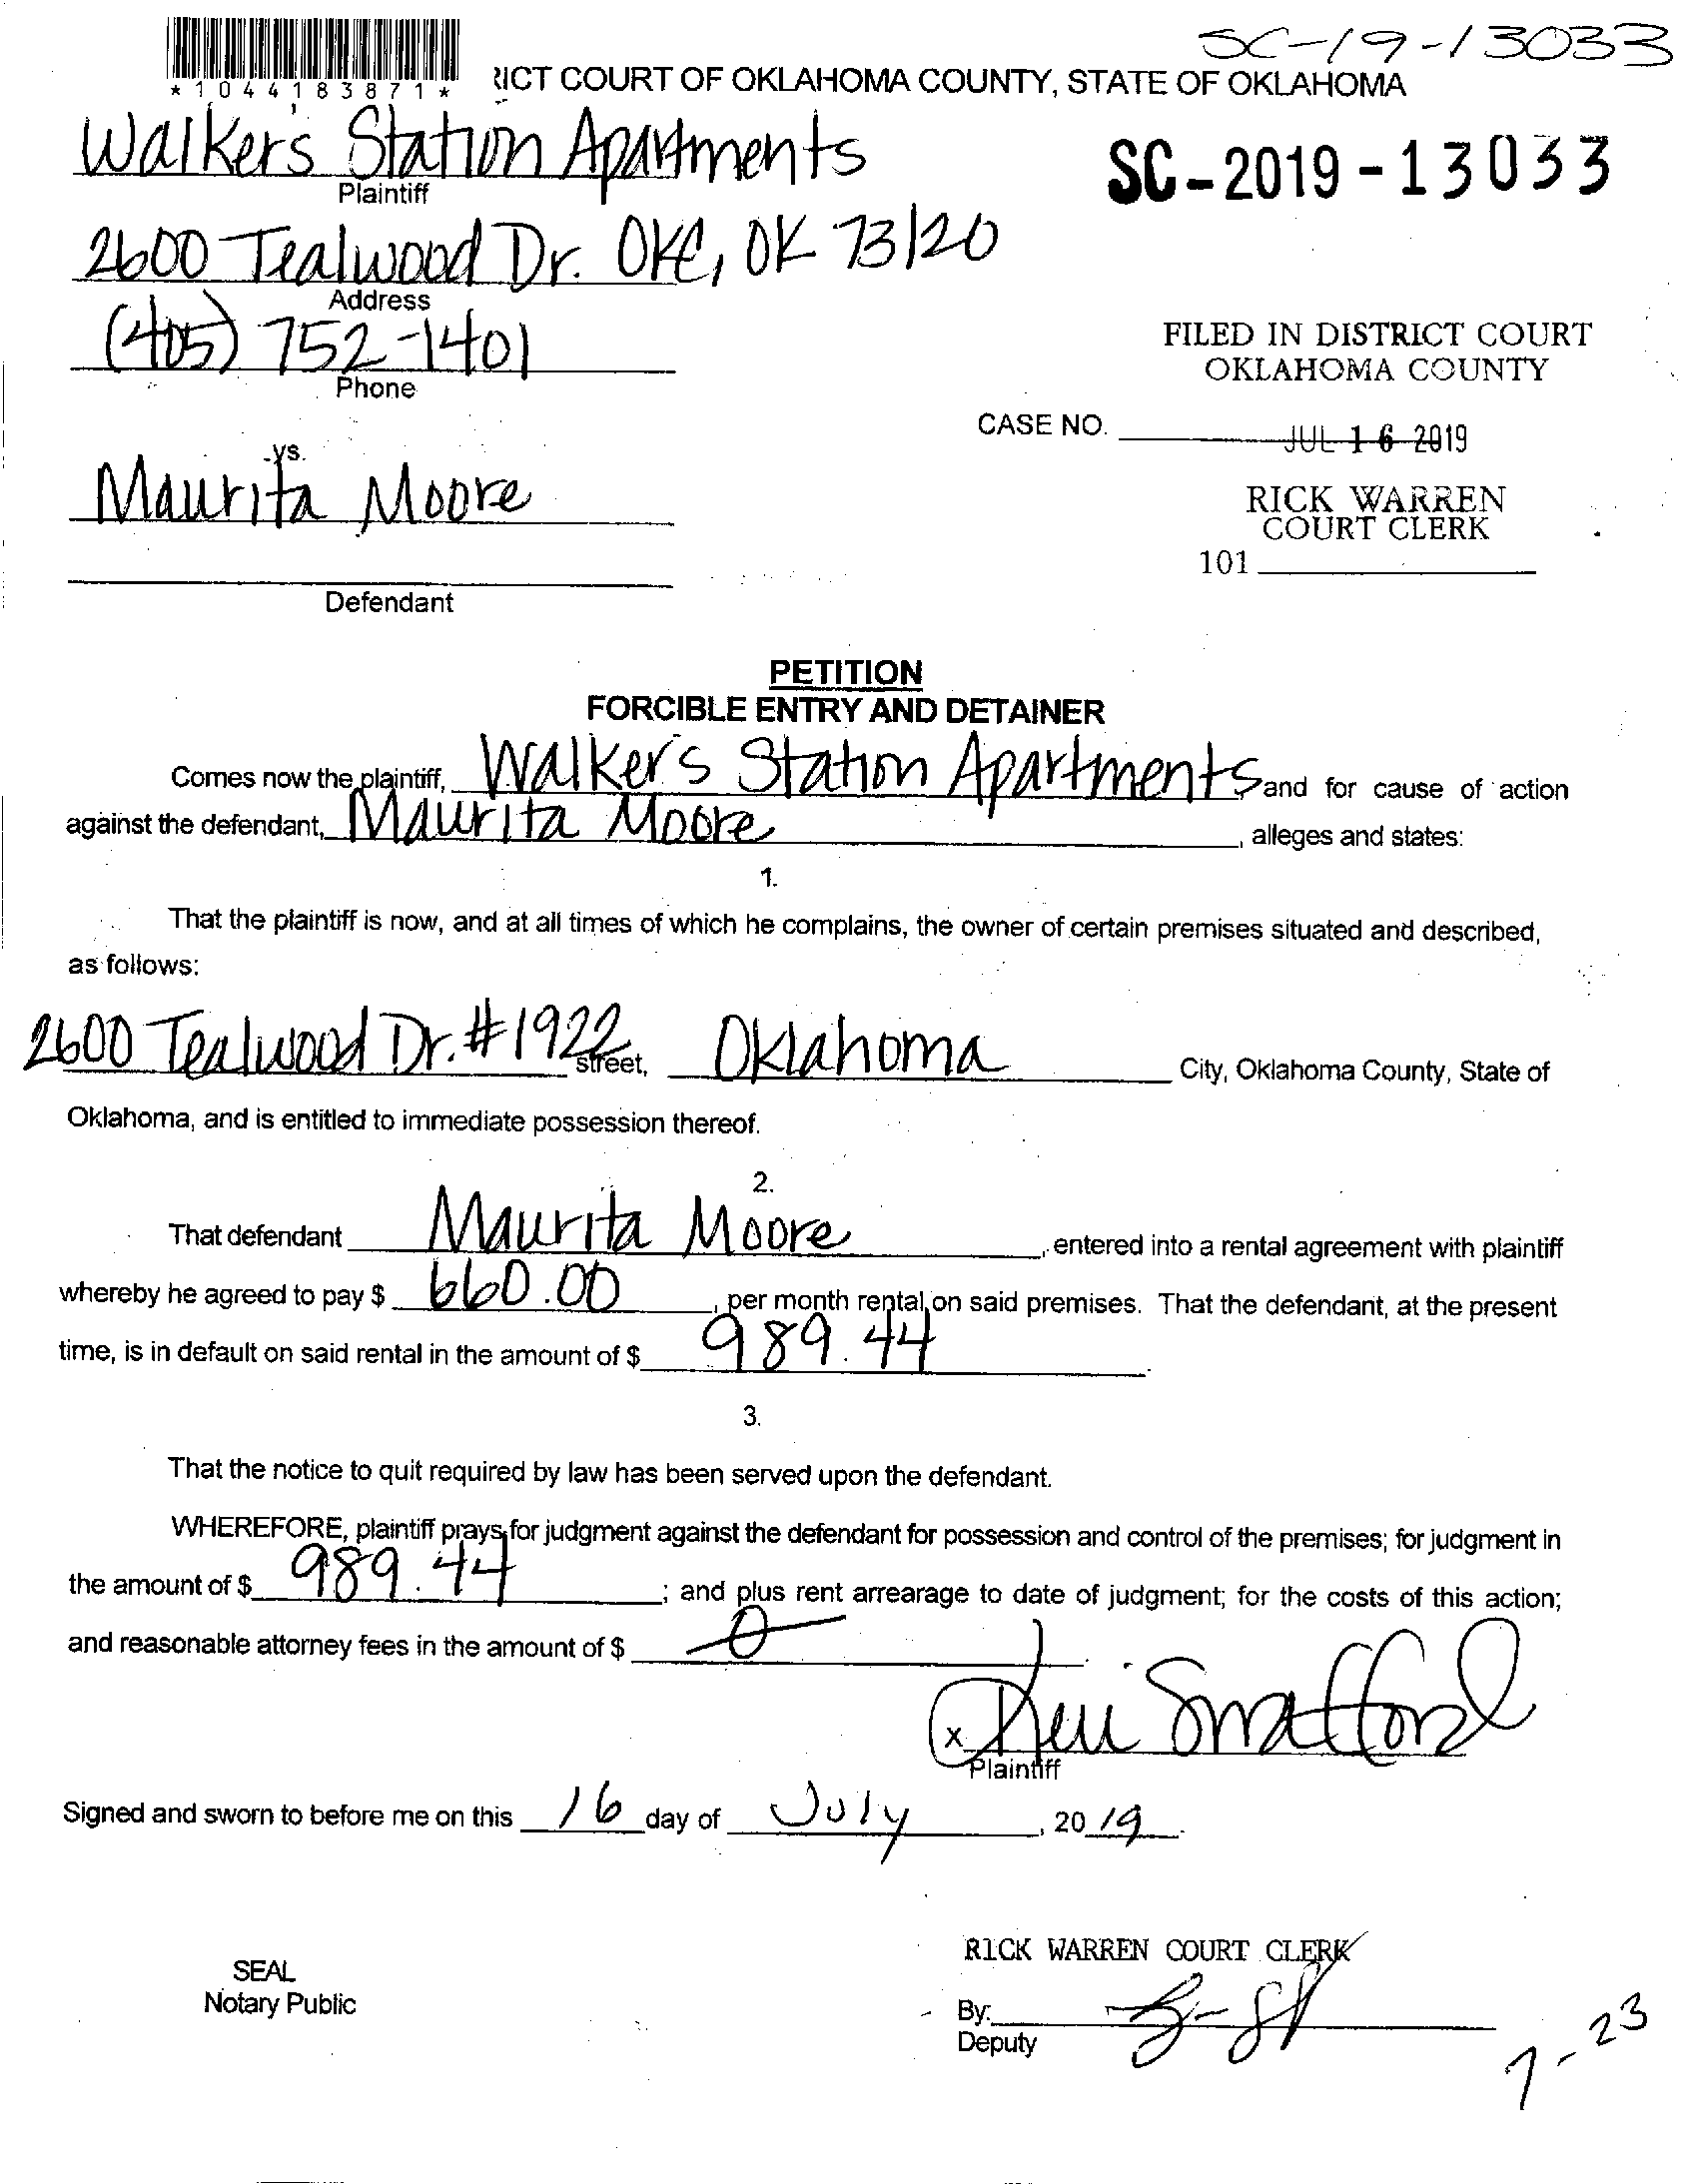 SC-19-13033
*1044183871*
RICT COURT OF OKLAHOMA COUNTY, STATE OF OKLAHOMA
Walker's Station Apartments
Plaintiff
SC-2019-13033
2600 Tealwood Dr. OKC, OK 73120
Address
(405) 752-1401
Phone
FILED IN DISTRICT COURT
OKLAHOMA COUNTY
CASE NO. JUL 16 2019
vs.
Maurita Moore
RICK WARREN
COURT CLERK
101
Defendant
PETITION
FORCIBLE ENTRY AND DETAINER
Comes now the plaintiff, Walker's Station Apartments and for cause of action
against the defendant, Maurita Moore, alleges and states:
1.
That the plaintiff is now, and at all times of which he complains, the owner of certain premises situated and described,
as follows:
2600 Tealwood Dr. #1922 street, Oklahoma City, Oklahoma County, State of
Oklahoma, and is entitled to immediate possession thereof.
2.
That defendant Maurita Moore, entered into a rental agreement with plaintiff
whereby he agreed to pay $ 660.00, per month rental on said premises. That the defendant, at the present
time, is in default on said rental in the amount of $ 989.44.
3.
That the notice to quit required by law has been served upon the defendant.
WHEREFORE, plaintiff prays for judgment against the defendant for possession and control of the premises; for judgment in
the amount of $ 989.44; and plus rent arrearage to date of judgment; for the costs of this action;
and reasonable attorney fees in the amount of $ 0.
x
Plaintiff
Signed and sworn to before me on this 16 day of July, 2019.
RICK WARREN COURT CLERK
SEAL
Notary Public
By:
Deputy
7-23